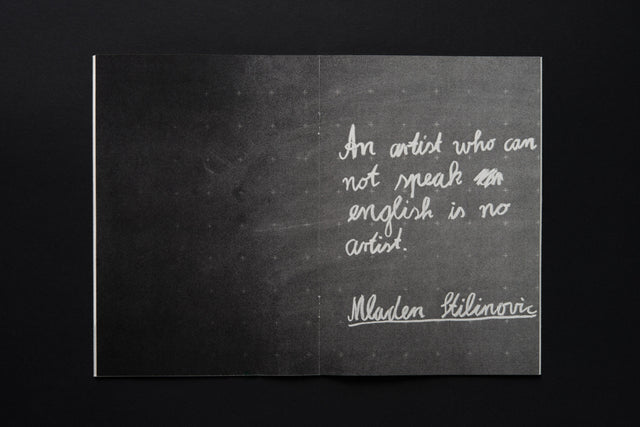 An artist who can
not speak
english is no
artist.
Mladen Stilinovic